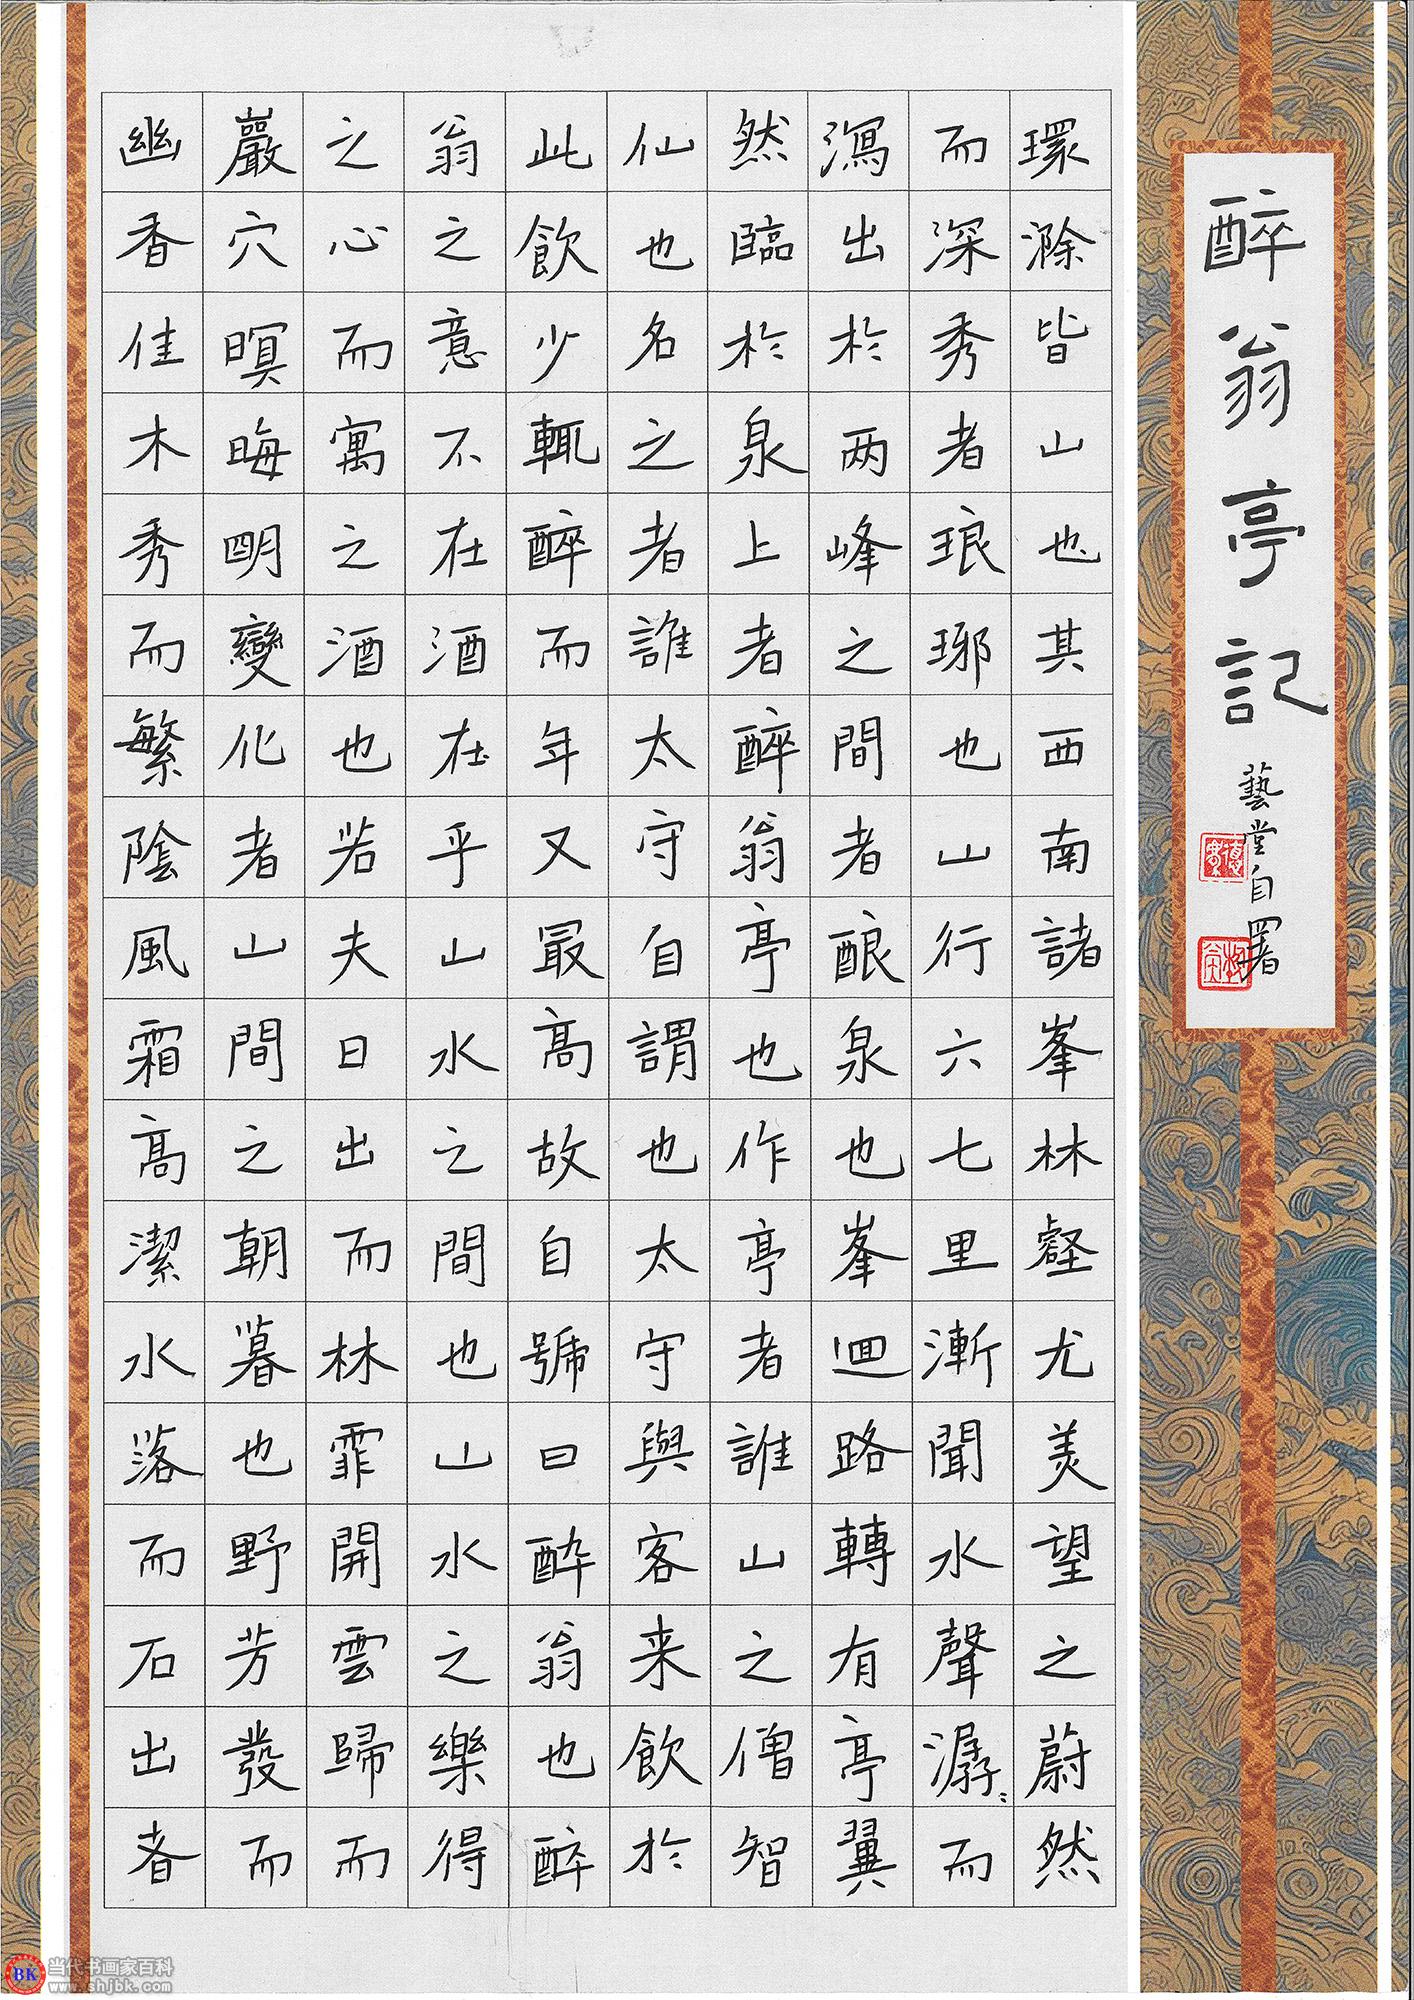 醉翁亭記
藝堂自署
環滁皆山也其西南諸峯林壑尤美望之蔚然
而深秀者琅琊也山行六七里漸聞水聲潺〻而
瀉出於两峰之間者酿泉也峯迴路轉有亭翼
然臨於泉上者醉翁亭也作亭者誰山之僧智
仙也名之者誰太守自謂也太守與客来飲於
此飲少輒醉而年又最高故自號曰醉翁也醉
翁之意不在酒在乎山水之間也山水之樂得
之心而寓之酒也若夫日出而林霏開雲歸而
巖穴暝晦明變化者山間之朝暮也野芳發而
幽香佳木秀而繁陰風霜高潔水落而石出者
BK
当代书画家百科
www.shjbk.com